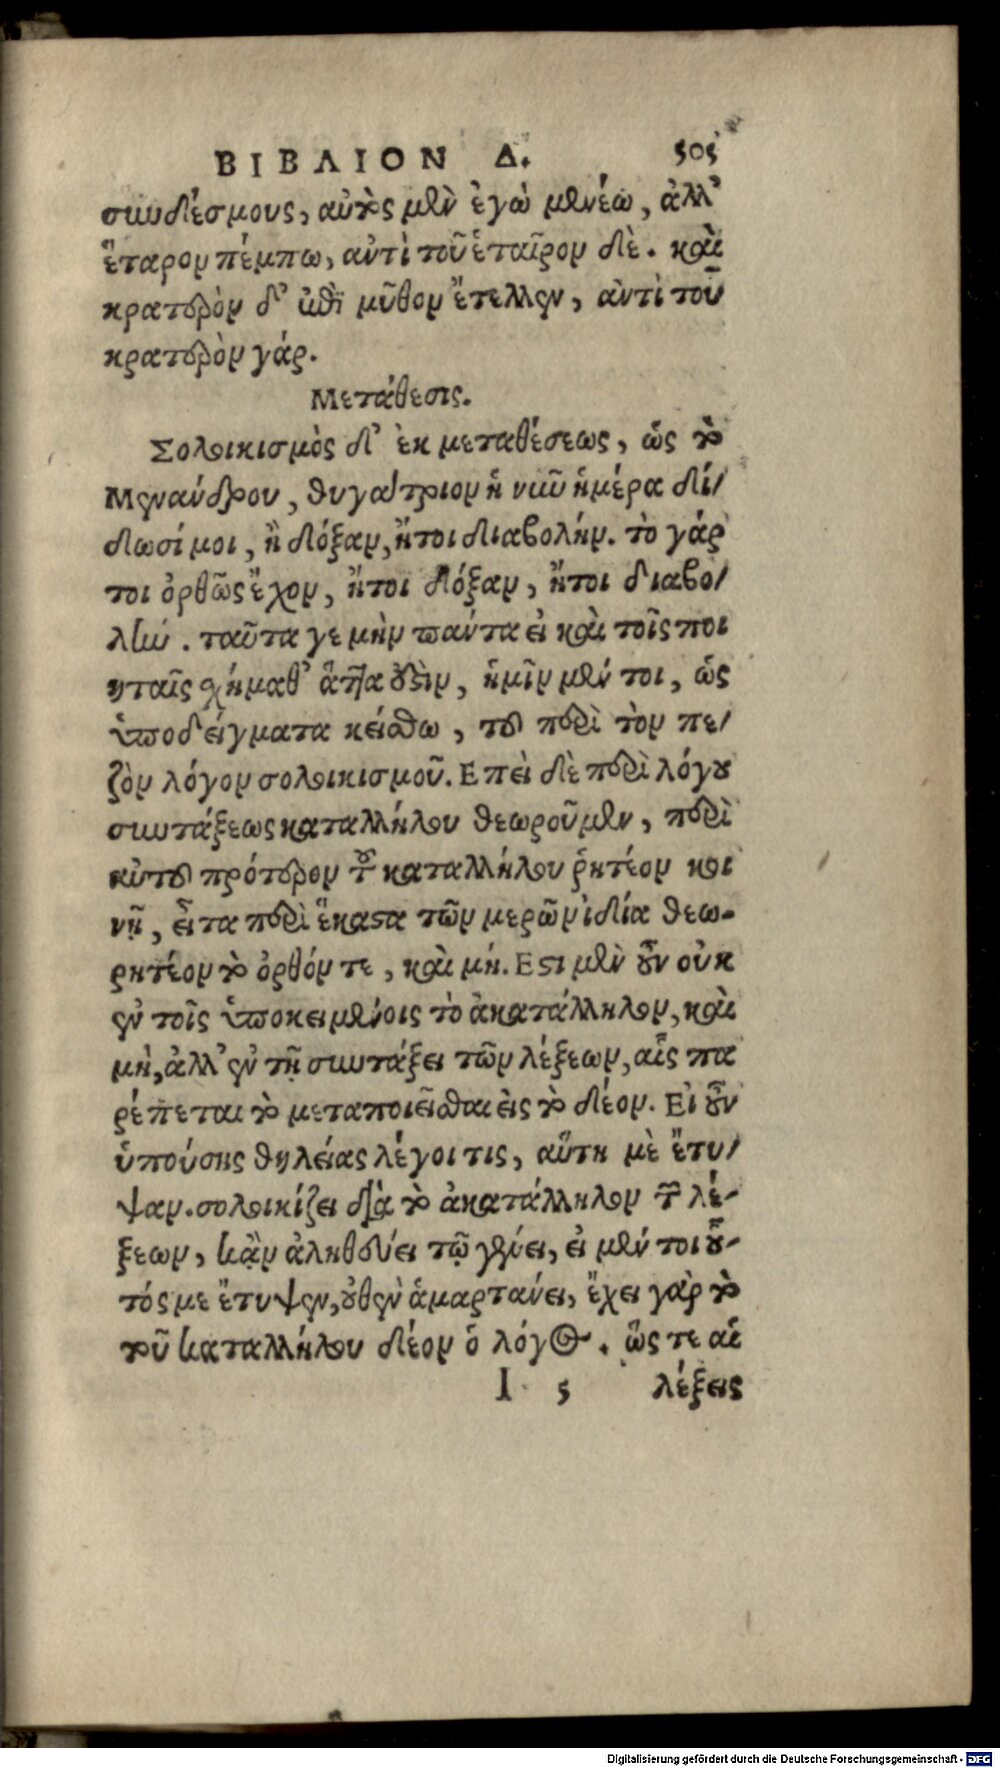 ΒΙΒΛΙΟΝ Δ. 505
συνδέσμους, αὐτὸς μὲν ἐγὼ μενέω, ἀλλ'
ἕταρον πέμπω, ἀντὶ τοῦ ἑταῖρον δὲ. καὶ
κρατερὸν δ' ἐπὶ μῦθον ἔτελλεν, ἀντὶ τοῦ
κρατερὸν γάρ.
Μετάθεσις.
Σολοικισμὸς δ' ἐκ μεταθέσεως, ὡς τὸ
Μενάνδρου, θυγάτριον ἡ νῦν ἡμέρα δί/
δωσί μοι, ἢ δόξαν, ἤτοι διαβολήν. τὸ γάρ
τοι ὀρθῶς ἔχον, ἤτοι δόξαν, ἤτοι διαβο/
λήν. ταῦτα γε μὴν πάντα εἰ καὶ τοῖς ποι
ηταῖς χήμαθ' ἅττα οὖσιν, ἡμῖν μέν τοι, ὡς
ὑποδείγματα κείσθω, τοῦ περὶ τὸν πε/
ζὸν λόγον σολοικισμοῦ. Επεὶ δὲ περὶ λόγου
συντάξεως καταλλήλου θεωροῦμεν, περὶ
αὐτοῦ πρότερον τοῦ καταλλήλου ῥητέον κοι
νῇ, εἶτα περὶ ἕκαστα τῶν μερῶν ἰδίᾳ θεω-
ρητέον τὸ ὀρθόν τε, καὶ μή. Εστι μὲν οὖν οὐκ
ἐν τοῖς ὑποκειμένοις τὸ ἀκατάλληλον, καὶ
μὴ, ἀλλ' ἐν τῇ συντάξει τῶν λέξεων, αἷς πα
ρέπεται τὸ μεταποιεῖσθαι εἰς τὸ δέον. Εἰ οὖν
ὑπούσης θηλείας λέγοι τις, αὕτη μὲ ἔτυ/
ψαν. σολοικίζει διὰ τὸ ἀκατάλληλον τῶν λέ-
ξεων, κἂν ἀληθεύει τῷ γένει, εἰ μέν τοι οὗ-
τός με ἔτυψεν, οὐθὲν ἁμαρτάνει, ἔχει γὰρ τὸ
τοῦ καταλλήλου δέον ὁ λόγος. ὥς τε αἱ
I 5 λέξεις
Digitalisierung gefördert durch die Deutsche Forschungsgemeinschaft - DFG